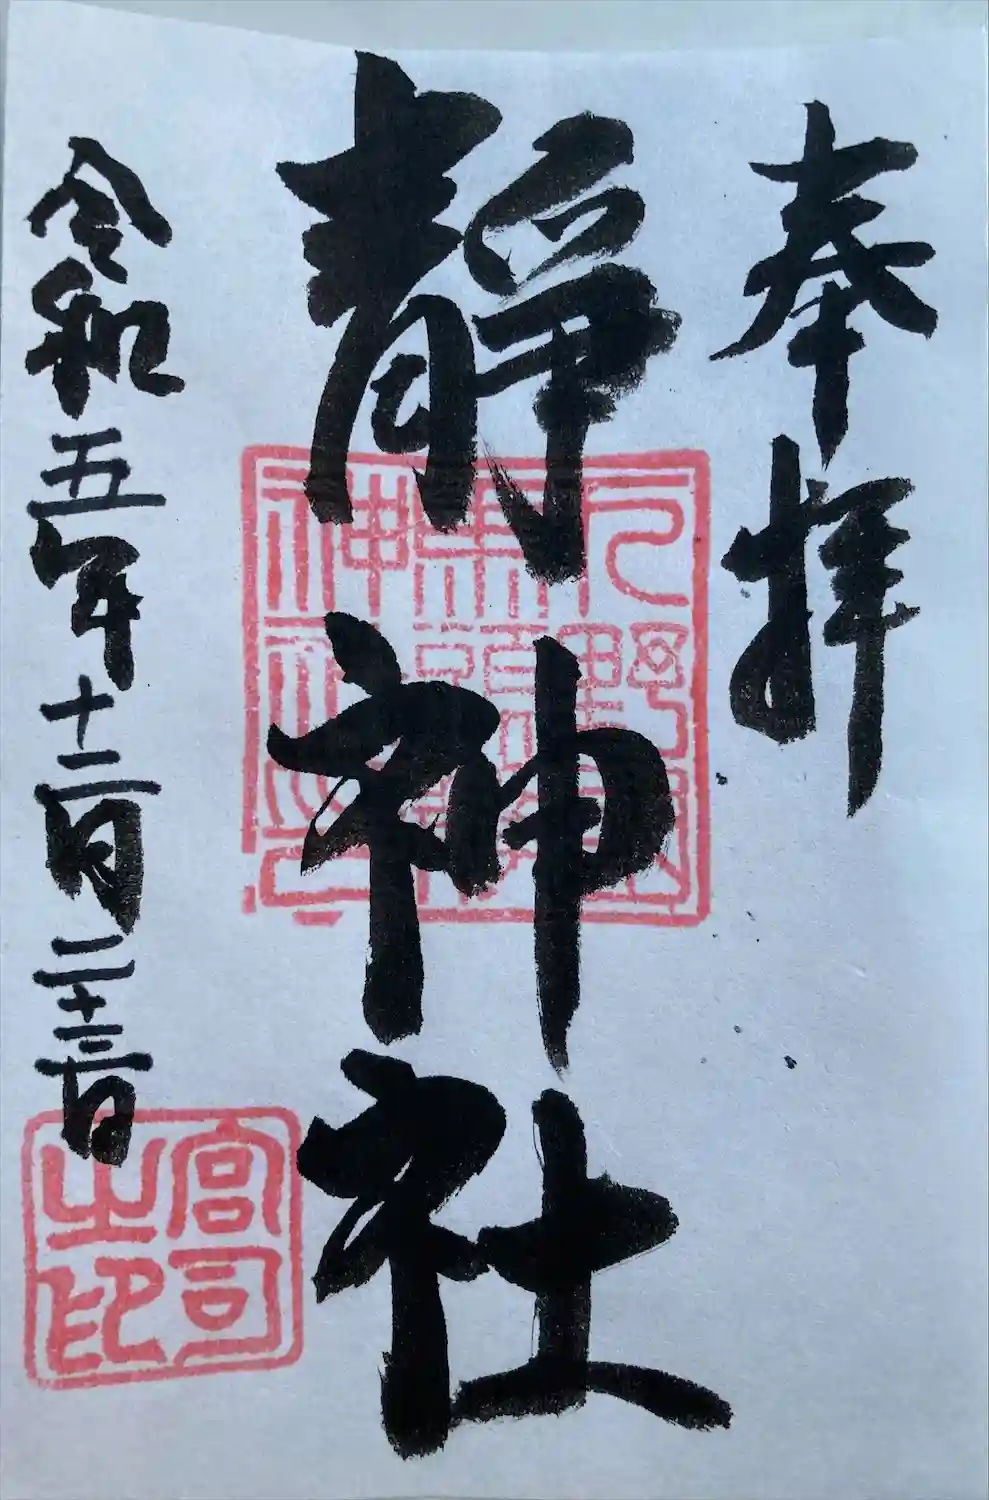 奉拝
靜神社
令和五年十二月二十三日
宮司之印